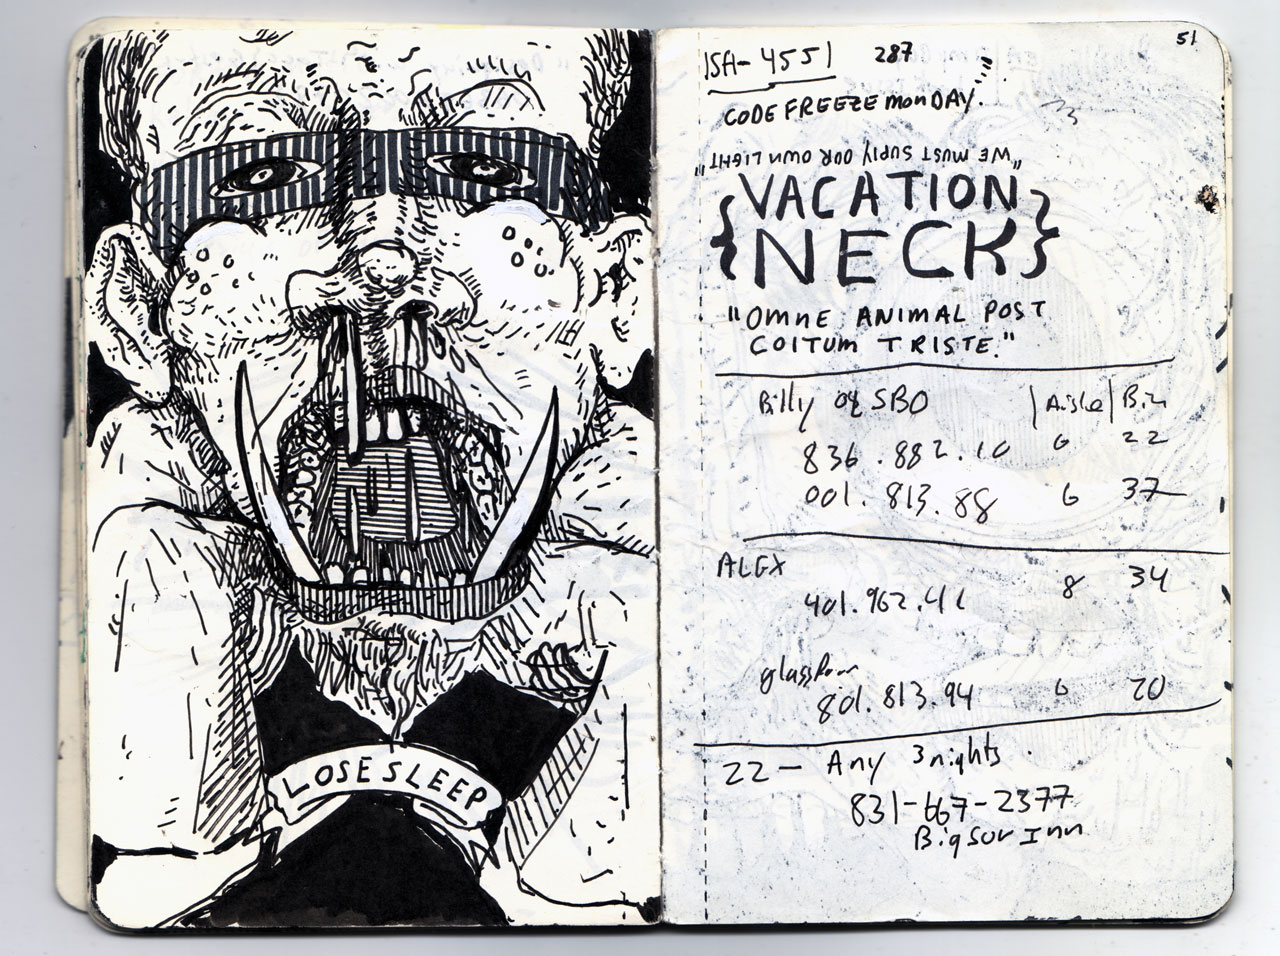 LOSE SLEEP
51
ISA-4551 287
CODE FREEZE MONDAY.
"WE MUST SUPLY OUR OWN LIGHT"
{VACATION
NECK}
"OMNE ANIMAL POST
COITUM TRISTE."
Billy og SBO |Aisle|Bin
836.882.10 6 22
001.813.88 6 37
ALEX 8 34
401.962.41
glass door
801.813.94 6 20
22 - Any 3 nights
831-667-2377
Big Sur Inn